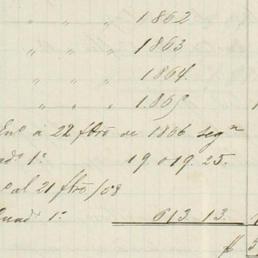 " " " 1862
" " " 1863
" " " 1864.
" " " 1865
Ene a 22 fbro de 1866 seg n
Quad 1º 19019.25.
al 21 fbro/08
Quad 1º 613.13.